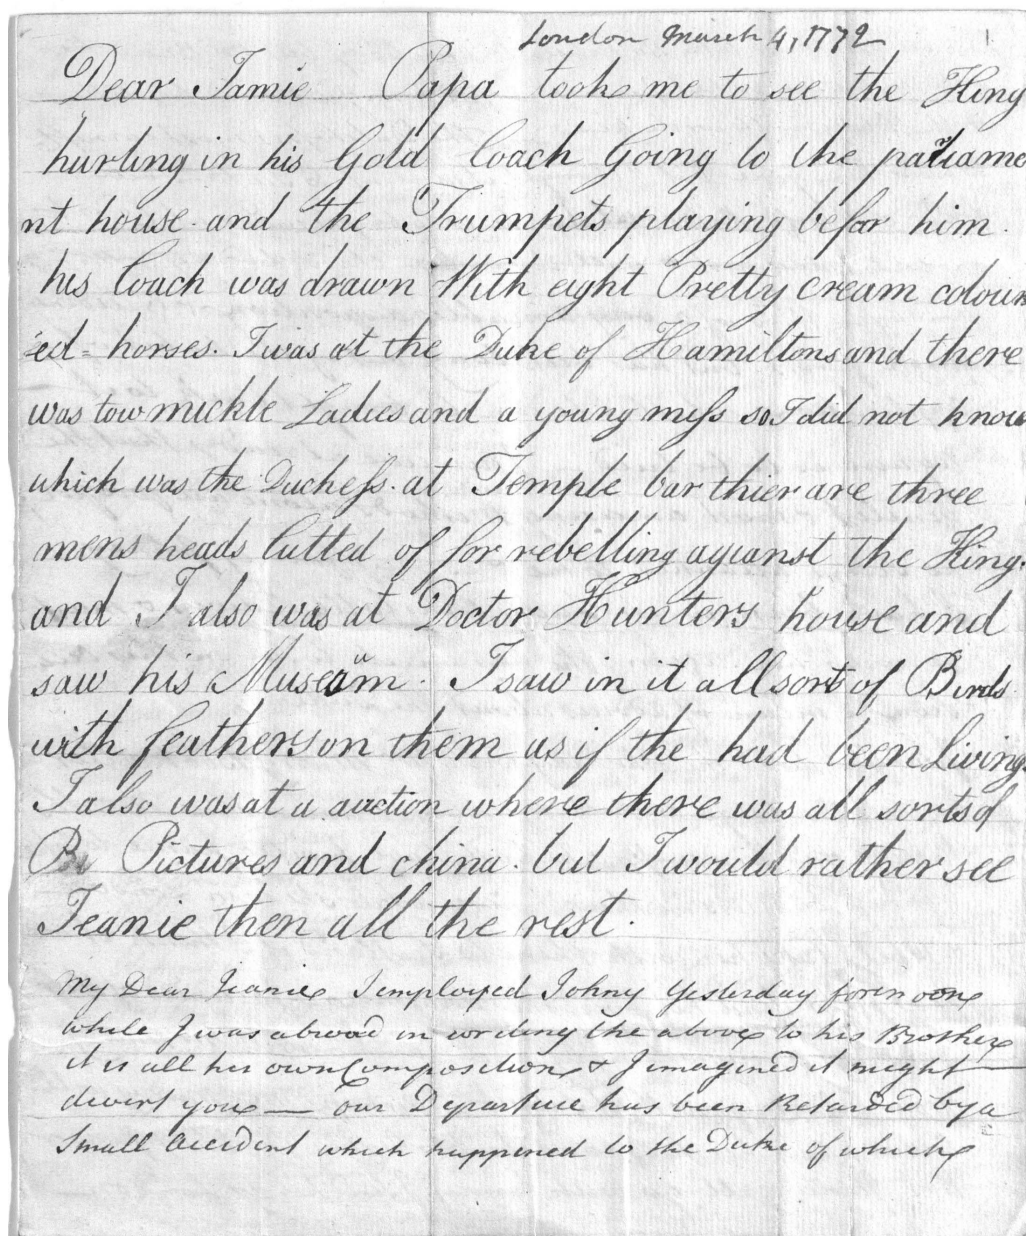 London March 4, 1772
Dear Jamie Papa took me to see the King
hurling in his Gold Coach Going to the parliame
nt house and the Trumpets playing befor him.
his Coach was drawn With eight Pretty cream colour
ed= horses. I was at the Duke of Hamiltons and there
was tow mickle Ladies and a young miss so I did not know
which was the Duchess. at Temple bar thier are three
mens heads Cutted of for rebelling agianst the King.
and I also was at Doctor Hunters house and
saw his Museum. I saw in it all sort of Birds
with feathers on them as if the had been Living
I also was at a auction where there was all sorts of
Pictures and china. but I would rather see
Jeanie then all the rest.
My Dear Jeanie I employed Johny Yesterday forenoon
while I was abroad in writing the above to his Brother
it is all his own Composition & I imagined it might
divert you — our Departure has been Retarded by a
Small accident which happened to the Duke of which